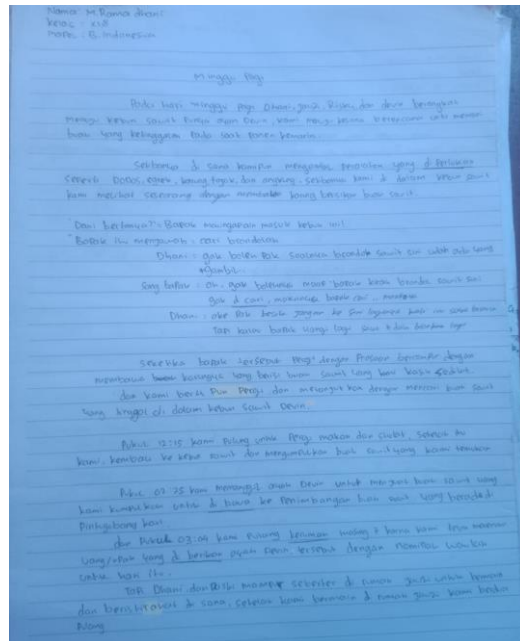 Nama : M. Rama dhani
Kelas : XI.8
Mapel : B. Indonesia
Minggu Pagi
Pada hari minggu pagi Dhani, gauzi, Rizki, dan devin berangkat
menuju kebun sawit punya ayah Devin, kami menuju kesana berencana untuk mencari
buah yang ketinggalan pada saat panen kemarin.
Setibanya di sana kamipun mengambil peralatan yang di perlukan
seperti Dodos, egrek, karung, tojok, dan angkong, setibanya kami di dalam kebun sawit
kami melihat seseorang dengan membawa karung berisikan buah sawit.
Dani bertanya : Bapak mau ngapain masuk kebun ini?
"Bapak itu menjawab : cari brondolan
Dhani : gak boleh Pak soalnya brondol sawit sini udah ada yang
ngambil.
Sang bapak : oh, gak boleh
gak di cari, makannya bapak cari
Dhani : oke Pak besok jangan ke sini lagi
Tapi kalau bapak ulangi lagi saya
Seketika bapak tersebut pergi dengan Perasaan bercampur, dengan
membawa karungnya yang berisi buah sawit yang kami kasih sedikit.
dan kami berse Pun Pergi dan melanjutkan dengan mencari buah sawit
yang tinggal di dalam kebun sawit Devin.
Pukul 12:15 kami Pulang untuk Pergi makan dan sholat, setelah itu
kami, kembali ke kebun sawit dan mengumpulkan buah sawit yang kami temukan
Pukul 02:25 kami memanggil ayah Devin untuk mengangkut buah sawit yang
kami kumpulkan untuk di bawa ke Penimbangan buah sawit yang berada di
Pintu gabang
dan Pukul 03:09 kami Pulang kerumah masing 2 karna kami telah menerima
uang/upah yang di berikan ayah Devin tersebut dengan nominal
untuk hari itu.
Tapi Dhani dan Rizki mampir sebentar di rumah gauzi untuk bermain
dan beristirahat di sana, setelah kami bermain di rumah gauzi kami
Pulang